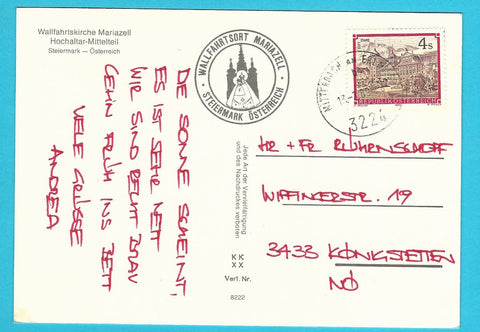 Wallfahrtskirche Mariazell
Hochaltar-Mittelteil
Steiermark — Österreich
WALLFAHRTSORT MARIAZELL
STEIERMARK ÖSTERREICH
4 S
REPUBLIK ÖSTERREICH
MITTERBACH AM
3224
DIE SONNE SCHEINT,
ES IST SEHR NETT
WIR SIND RECHT BRAV
GEHN FRÜH INS BETT
VIELE GRÜSSE
ANDREA
Jede Art der Vervielfältigung
und des Nachdruckes verboten
KK
XX
Verl. Nr.
8222
HR + FR
19
3433 KÖNIGSTETTEN
NÖ